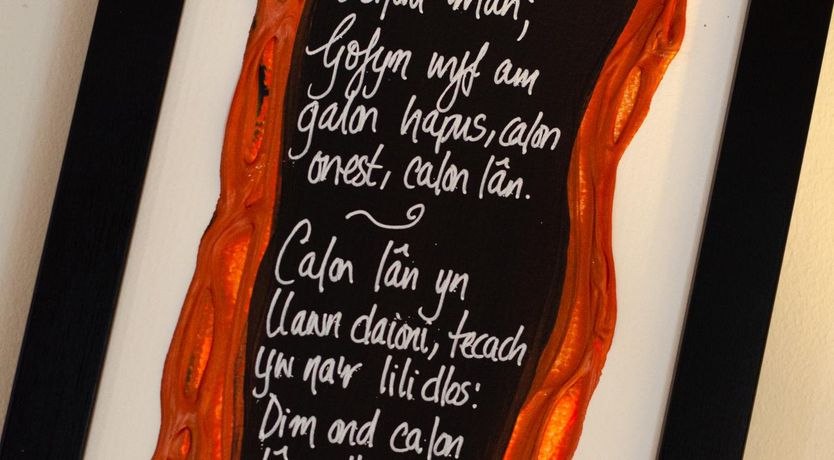 mân,
Gofyn wyf am
galon hapus, calon
onest, calon lân.
Calon lân yn
llawn daioni, tecach
yw na'r lili dlos:
Dim ond calon